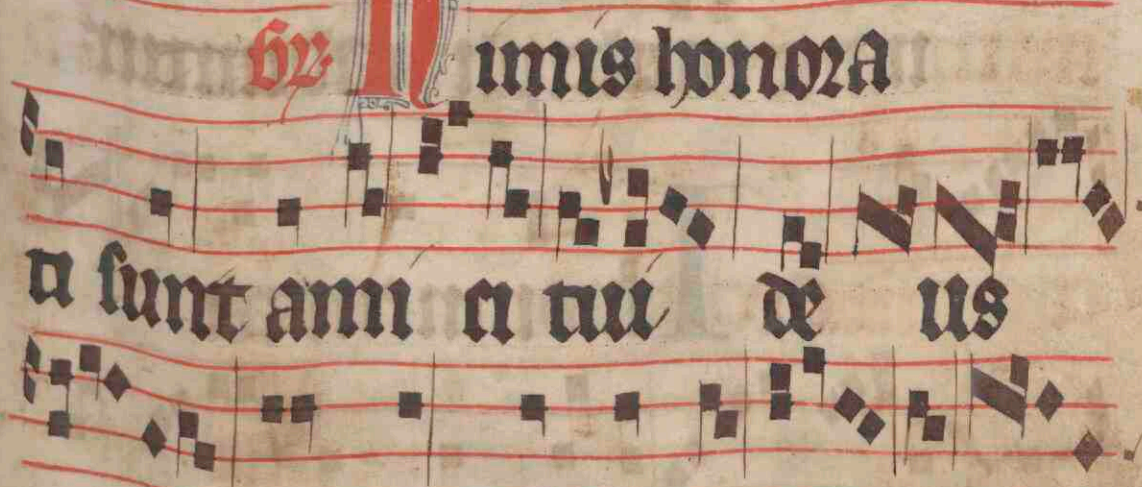 Gr̄ Nimis honora
ti sunt ami ci tui de us